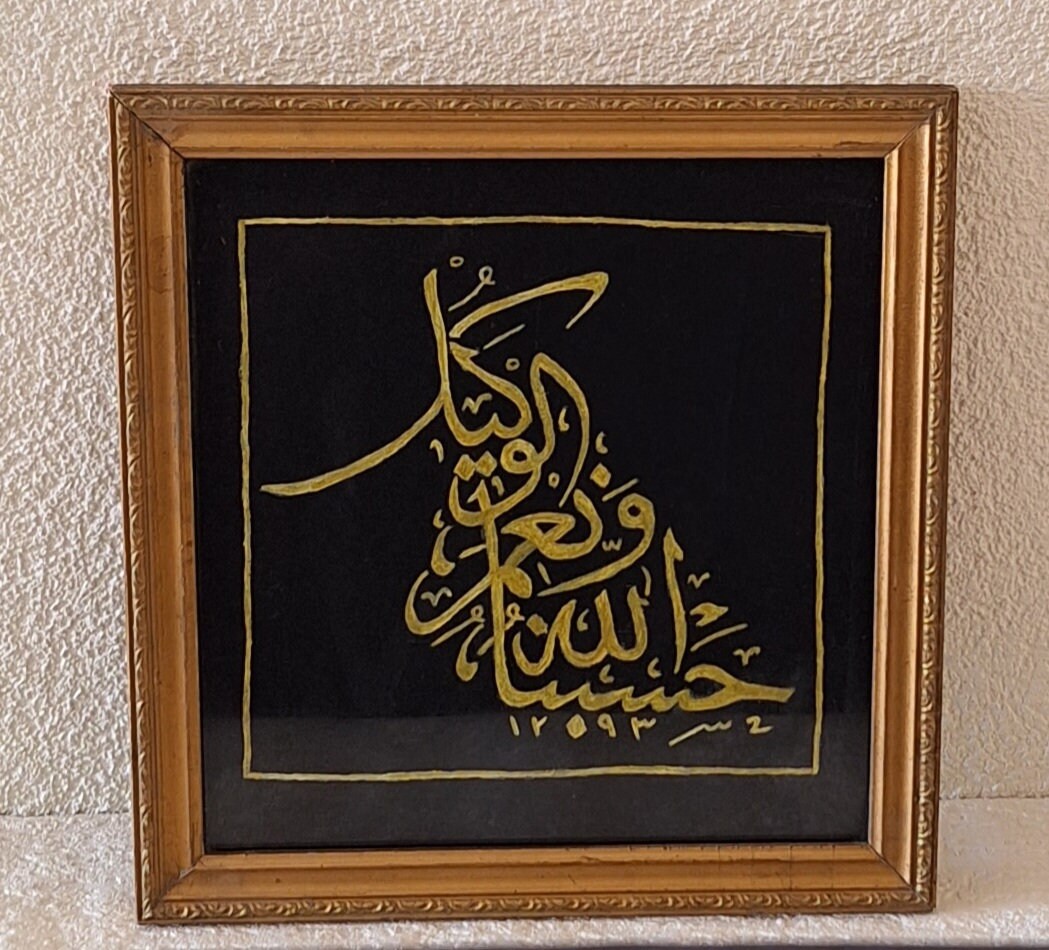 حَسْبُنَا اللّٰهُ
وَنِعْمَ
الْوَكِيلُ
١٢٩٣